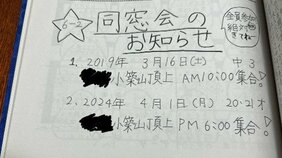 6-2
同窓会の
お知らせ
全員参加
絶対
きてねー
1. 2019年 3月16日(土) 中3
小築山頂上 AM10:00集合!
2. 2024年 4月1日(月) 20・21才
小築山頂上 PM 6:00集合!